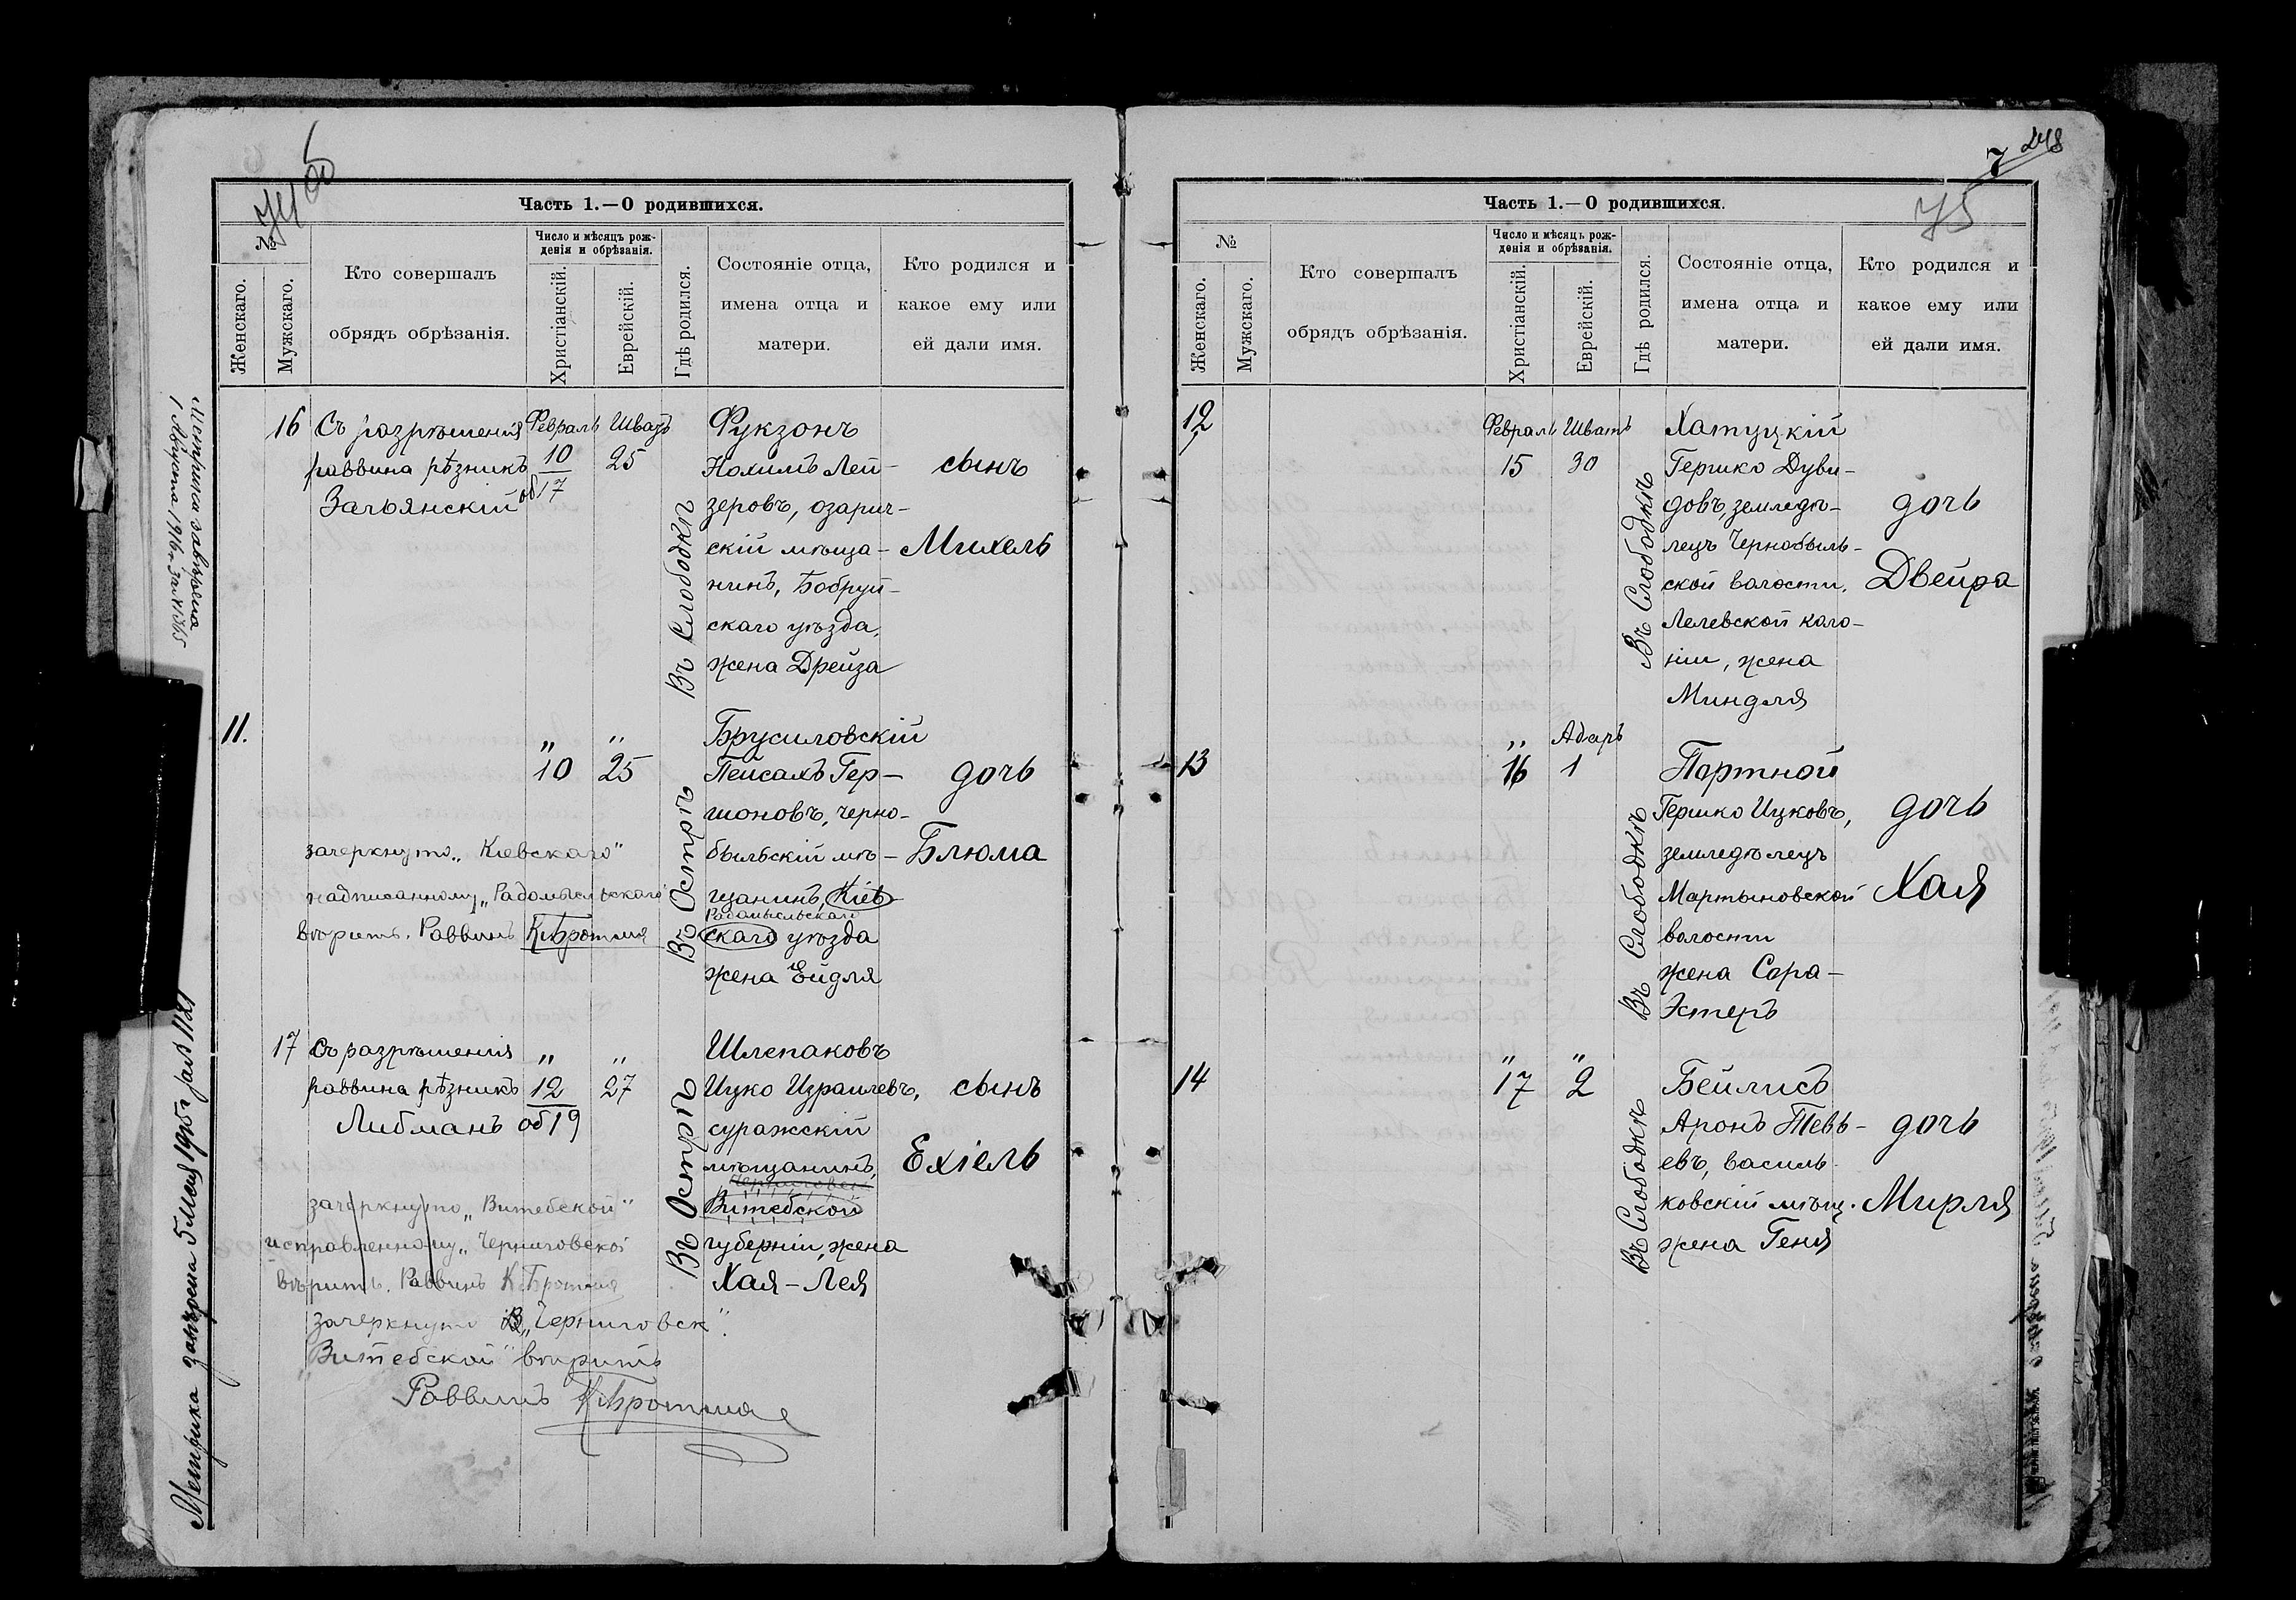 74
Часть 1.—О родившихся.
№
Женскаго.
Мужскаго.
Кто совершалъ
обрядъ обрѣзанія.
Число и мѣсяцъ рож-
денія и обрѣзанія.
Христіанскій.
Еврейскій.
Гдѣ родился.
Состояніе отца,
имена отца и
матери.
Кто родился и
какое ему или
ей дали имя.
16 Съ разрѣшенія Февраль Шватъ Фукзонъ
раввина рѣзникъ 10 25 Нохимъ Лей- сынъ
Зачьянскій об 17
Въ Слободкѣ
зеровъ, озарич-
скій мѣща- Михель
нинъ, Бобруй-
скаго уѣзда,
жена Дрейза
11. " " Брусиловскій
10 25 Пейсахъ Гер- дочь
Въ Острѣ
шоновъ, черно-
зачеркнуто „Кіевскаго" быльскій мѣ- Блюма
надписанному „Радомысльскаго" щанинъ, Кіев
Радомысльскаго
вѣрить. Раввинъ скаго уѣзда
жена Ейдля
17 Съ разрѣшенія " " Шлепаковъ
раввина рѣзникъ 12 27 Ицко Израилевъ, сынъ
Либманъ об 19 суражскій
Въ Острѣ
мѣщанинъ, Ехіель
Черниговск
зачеркнуто „Витебской" Витебской
исправленному „Черниговской губерніи, жена
вѣрить. Раввинъ Хая-Лея
зачеркнуто „Черниговск".
„Витебской" вѣрить
Раввинъ
Метрика заявлена
1 Августа 1916 г. за №
Метрика 5 Мая за №
7 248
75
Часть 1.—О родившихся.
№
Женскаго.
Мужскаго.
Кто совершалъ
обрядъ обрѣзанія.
Число и мѣсяцъ рож-
денія и обрѣзанія.
Христіанскій.
Еврейскій.
Гдѣ родился.
Состояніе отца,
имена отца и
матери.
Кто родился и
какое ему или
ей дали имя.
12 Февраль Шватъ Хатуцкій
15 30 Гершко Дуви-
Въ Слободкѣ
довъ, земледѣ- дочь
лецъ Чернобыль-
ской волости, Двейра
Лелевской коло-
ніи, жена
Миндля
" Адаръ
13 16 1 Портной
Въ Слободкѣ
Гершко Ицковъ, дочь
земледѣлецъ
Мартыновской Хая
волости
жена Сора-
Эстеръ
" "
14 17 2 Бейлисъ
Въ Слободкѣ
Аронъ Тевь- дочь
евъ, василь-
ковскій мѣщ. Мирля
жена Геня